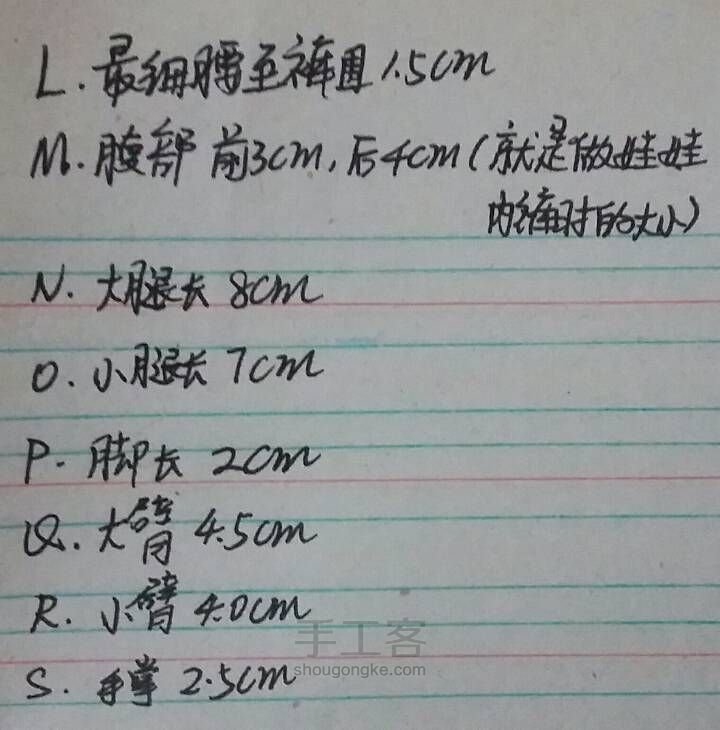 L. 最细腰至裤围 1.5cm
M. 腹部 前3cm, 后4cm (就是做娃娃
内裤时的大小)
N. 大腿长 8cm
O. 小腿长 7cm
P. 脚长 2cm
Q. 大臂 4.5cm
R. 小臂 4.0cm
手工客
shougongke.com
S. 手掌 2.5cm